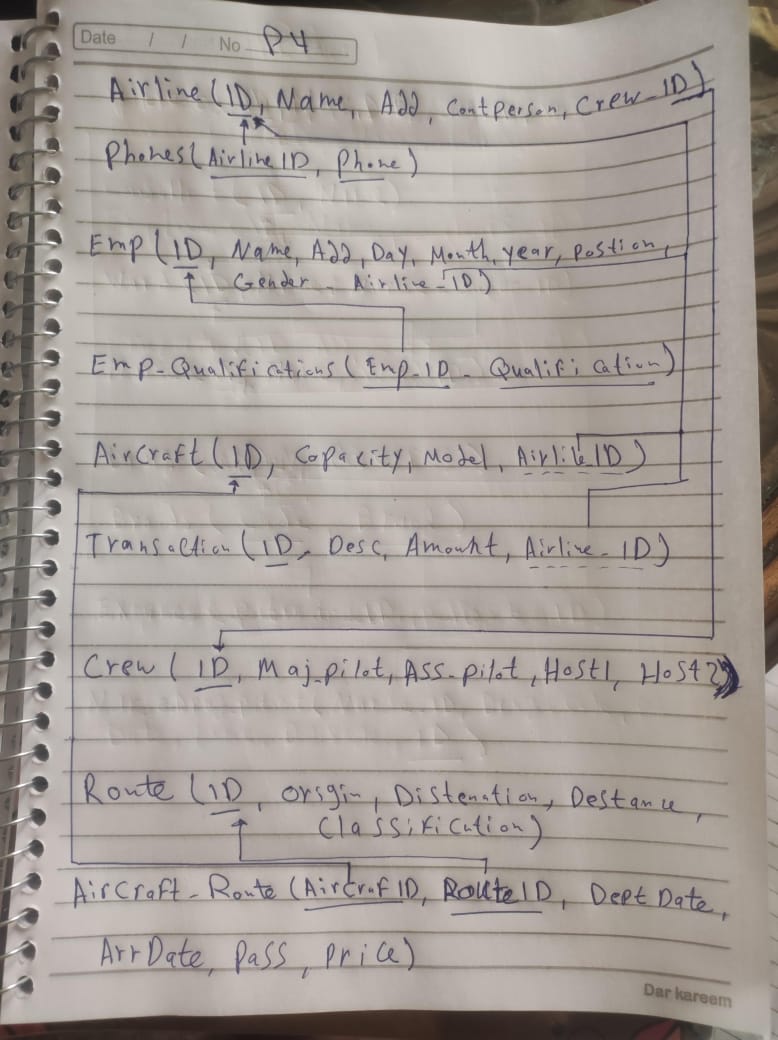 Date / / No P4
Airline (ID, Name, Add, Contperson, Crew_ID)
Phones (Airline ID, Phone)
Emp (ID, Name, Add, Day, Month, year, Postion,
Gender - Airline-ID)
Emp-Qualifications (Emp-ID - Qualification)
AirCraft (ID, Capacity, Model, AirlineID)
Transaction (ID, Desc, Amount, Airline-ID)
Crew (ID, Maj-pilot, Ass-pilot, Host1, Host2)
Route (ID, orsgin, Distenation, Destance,
Classification)
AirCraft-Route (AircrafID, RouteID, Dept Date,
ArrDate, Pass, Price)
Dar kareem